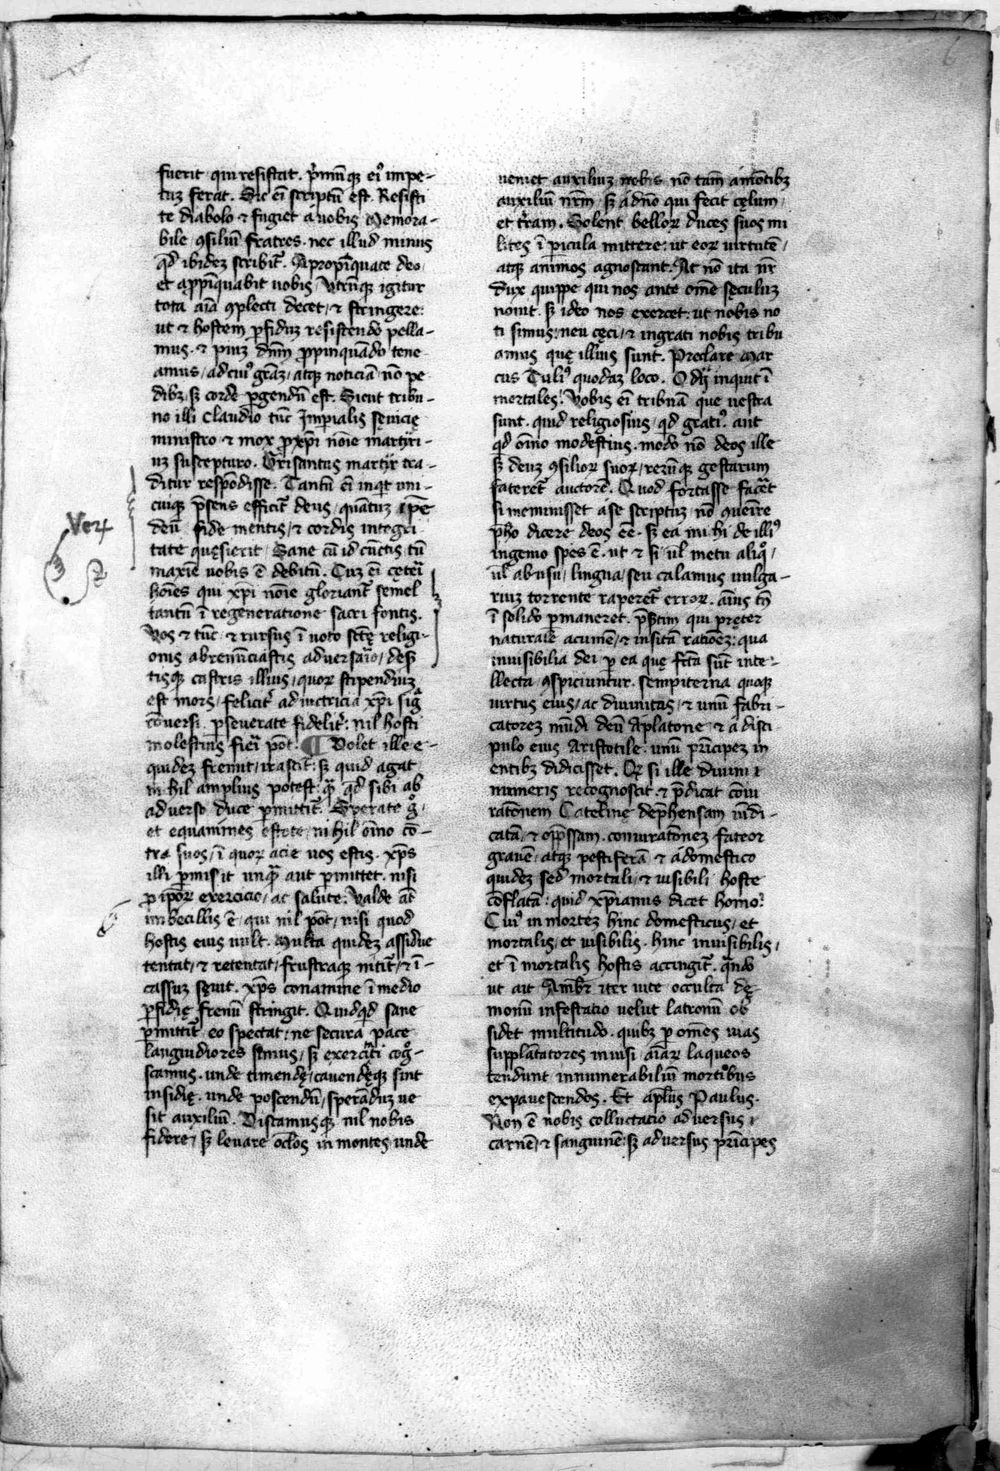 6
fuerit qui resistat. p̄rimūqꝫ eiꝰ impe-
tuꝫ ferat. Sic eī scriptū est. Resisti
te diabolo ⁊ fugiet a uobis. Memora-
bile ꝯsiliū fratres. nec illud minus
qd̄ ibideꝫ scribit᷑. Apropīquate deo/
et appīquabit uobis. Utrūqꝫ igitur
tota aīa ꝯplecti decet/ ⁊ stringere:
ut ⁊ hostem ꝑfiduꝫ resistendo pella-
mus. ⁊ piuꝫ dn̄m ꝓpinquādo tene-
amus/ ad cuiꝰ grām/ atqꝫ noticiā nō pe
dibꝫ/ sꝫ corde ꝑgendū est. Sicut tribu-
no illi Claudio tūc Imperialis seuicię
ministro ⁊ mox ꝓ xp̄i nōīe martyri-
uꝫ suscepturo. Crisantus martyr tra-
ditur respōdisse. Tantū eī inqͥt uni-
cuiqꝫ p̄sens efficit᷑ deus/ quātuꝫ ip̄e
deū fide mentis/ ⁊ cordis integri
tate quęsierit. Sane cū id cūctis tū
maxīe uobis ē debitū. Cuꝫ eī cęteri
hoīes qui xp̄i nōīe gloriant᷑ semel
tantū ī regeneratione sacri fontis.
Uos ⁊ tūc/ ⁊ rursus ī uoto sctę religi-
onis abrenūciastis aduersario/ desꝫ
tisqꝫ castris illius/ quoꝝ stipendiuꝫ
est mors/ feliciter ad uictricia xp̄i sigᷓ
cōuersi. ꝑseuerate fidelit᷑: nil hosti
molestius fieri pōt. ¶ Dolet ille e-
quideꝫ fremit/ irascit᷑: sꝫ quid agat
nihil amplius potest: qᷓ qd̄ sibi ab
aduerso duce ꝑmittit᷑. Sperate gͦ/
et equanimes estote/ nihil oīno cō-
tra suos/ ī quoꝝ acie uos estis. xp̄s
illi ꝑmisit unqᷓ aut ꝑmittet. nisi
ꝓ ip̄oꝝ exercicio/ ac salute. Valde āt
imbecillis ē/ qui nil pōt/ nisi quod
hostis eius uult. Multa quideꝫ assidue
tentat/ ⁊ retentat/ frustraqꝫ nitit᷑/ ⁊ ī-
cassuꝫ sęuit. xp̄s conamine ī medio
ꝑfidię frenū stringit. Quidqͥd sane
ꝑmittit᷑ eo spectat: ne secura pace
languidiores simus/ sꝫ exerciti cogͦ-
scamus. unde timendę/ cauendęqꝫ sint
insidię. unde poscendū/ sperāduꝫ ue
sit auxiliū. Discamusqꝫ nil nobis
fidere/ sꝫ leuare oc̄los in montes/ unde
ueniet auxiliuꝫ nobis nō tam̄ a mōtibꝫ
auxiliū nr̄m/ sꝫ a dn̄o qui fecit cęlum/
et t᷑ram. Solent belloꝝ duces suos mi
lites ī picula mittere: ut eoꝝ uirtutē/
atqꝫ animos agnoscant. At nō ita nr̄
dux quippe qui nos ante om̄e seculuꝫ
nouit. sꝫ ideo nos exercet: ut nobis no
ti simus: neu cęci/ ⁊ ingrati nobis tribu
amus quę illius sunt. Preclare Mar
cus Tuliꝰ quodaꝫ loco. O dij inquit ī
mortales. Uobis eī tribuā que uestra
sunt. quid religiosius/ qd̄ gratiꝰ. aut
qd̄ oīno modestius. modo nō deos ille
sꝫ deuꝫ ꝯsilioꝝ suoꝝ/ rerūqꝫ gestarum
fateret᷑ auctorē. Quod fortasse fac̄et
si meminisset a se scriptuꝫ nō queire
ph̄o dicere deos ēē. sꝫ ea mihi de illiꝰ
ingenio spes ē. ut ⁊ si ul̄ metu aliqͦ/
ul̄ abusu/ lingua/ seu calamus uulga-
rium torrente raperet᷑ erroꝝ. aīus tn̄
ī solido ꝑmaneret. p̄s̄tim qui pręter
naturale acumē/ ⁊ insitā ratiōeꝫ: qua
inuisibilia dei ꝑ ea quę fc̄ta sūt inte-
llecta ꝯspiciuntur. sempiterna quoqꝫ
uirtus eius/ ac diuinitas/ ⁊ unū fabri-
catoreꝫ mūdi deū a platone/ ⁊ a disci-
pulo eius Aristotile. unū p̄rincipeꝫ in
entibꝫ didicisset. Qꝫ si ille diuini
muneris recognoscit ⁊ p̄dicat cōiu
ratōnem Catelinę dep̄hensam īdi-
catā/ ⁊ opp̄ssam. coniuratōneꝫ fateor
grauē/ atqꝫ pestiferā ⁊ a domestico
quidez sed mortali/ ⁊ uisibili hoste
cōflatā: quid xp̄ianus dicet homo?
Cuiꝰ in morteꝫ hinc domesticus/ et
mortalis/ et uisibilis. hinc inuisibilis/
et ī mortalis hostis accingit᷑. qn̄do
ut ait Amb̄r iter uite occulta dę
monū infestatio uelut latronū ob
sidet multitudo. quibꝫ ꝑ om̄es uias
supplātatores inuisi aīaꝝ laqueos
tendunt innumerabiliū mortibus
expauescendos. Et ap̄lus Paulus.
Non ē nobis colluctatio aduersus
carnē/ ⁊ sanguinē: sꝫ aduersus prīcipes